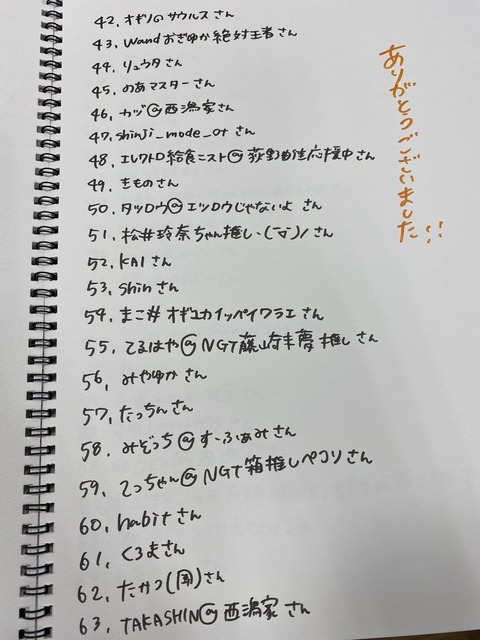 42. オギノのサウルスさん
43. Wandおぎゆか絶対王者さん
44. リュウタさん
45. のあマスターさん
46. カヅ@西潟家さん
47. shinji_mode_otさん
48. エレクトロ給食ニスト@荻野由佳応援中さん
49. きものさん
50. タツロウ@エツロウじゃないよ さん
51. 松井玲奈ちゃん推し、(▽)ノさん
52. KAIさん
53. shinさん
54. まこ# オギユカイッパイワラエさん
55. てるはや@NGT藤崎未夢推しさん
56. みやゆかさん
57. たっちんさん
58. みぞっち@すーふぁみさん
59. てっちゃん@NGT箱推しペコリさん
60. habitさん
61. くろまさん
62. たかつ(国)さん
63. TAKASHIN@西潟家さん
ありがとうございました!!